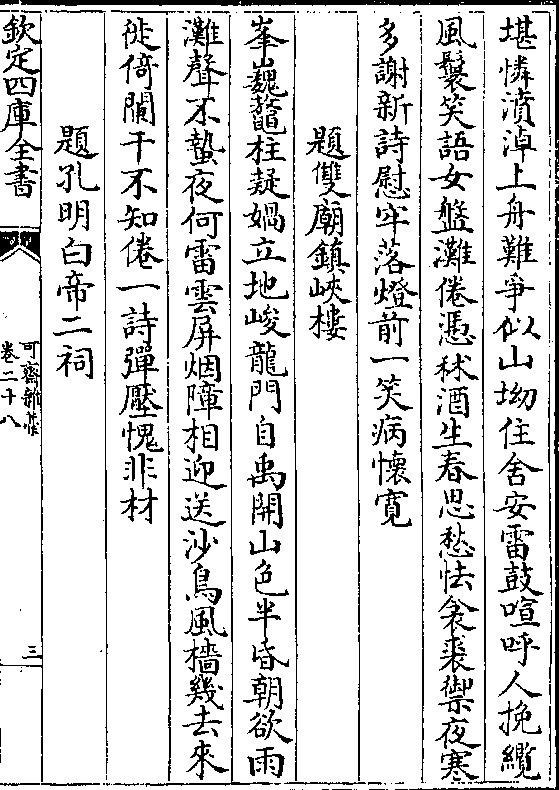 堪憐濆淖上舟難爭似山坳住舍安雷鼓喧呼人挽纜
風鬟笑語女盤灘倦憑秫酒生春思愁怯衾裘禦夜寒
多謝新詩慰牢落燈前一笑病懷寛
題雙廟鎮峽樓
峯巍鼇柱疑媧立地峻龍門自禹開山色半昏朝欲雨
灘聲不蟄夜何雷雲屏烟障相迎送沙鳥風檣幾去來
徙倚闌干不知倦一詩彈壓愧非材
題孔明白帝二祠
欽定四庫全書
可齋雜藁
卷二十八
三